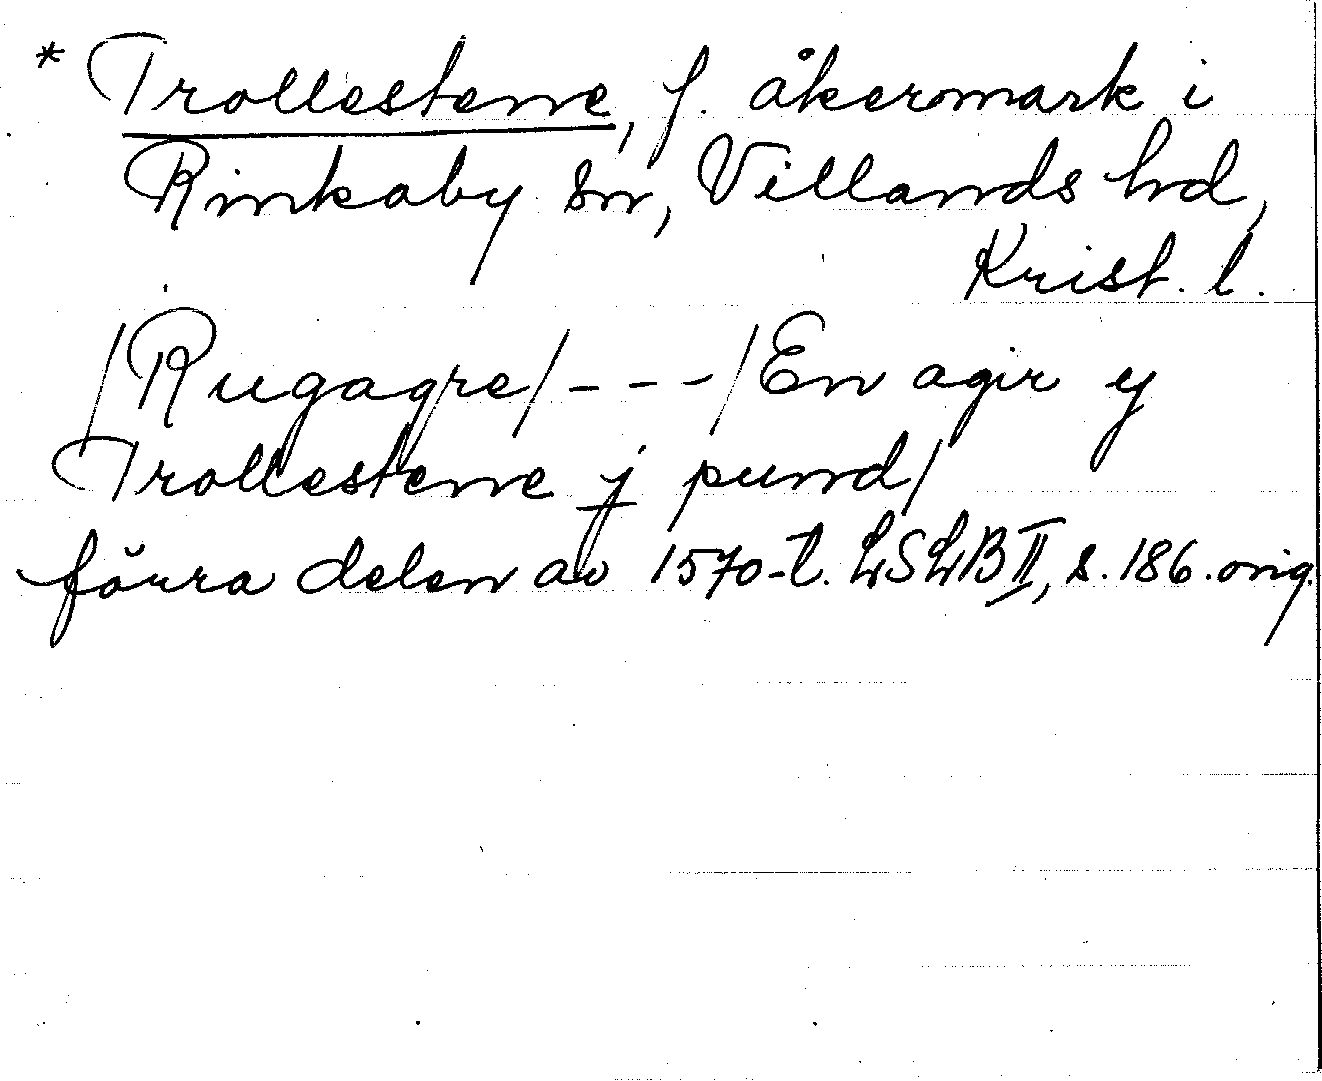 * Trollestene, f. åkermark i
Rinkaby sn, Villands hd,
Krist. l.
/Rugagre/ - - - /En agir y
Trollestene j pund/
förra delen av 1570-t. LSLB II, s. 186. orig.